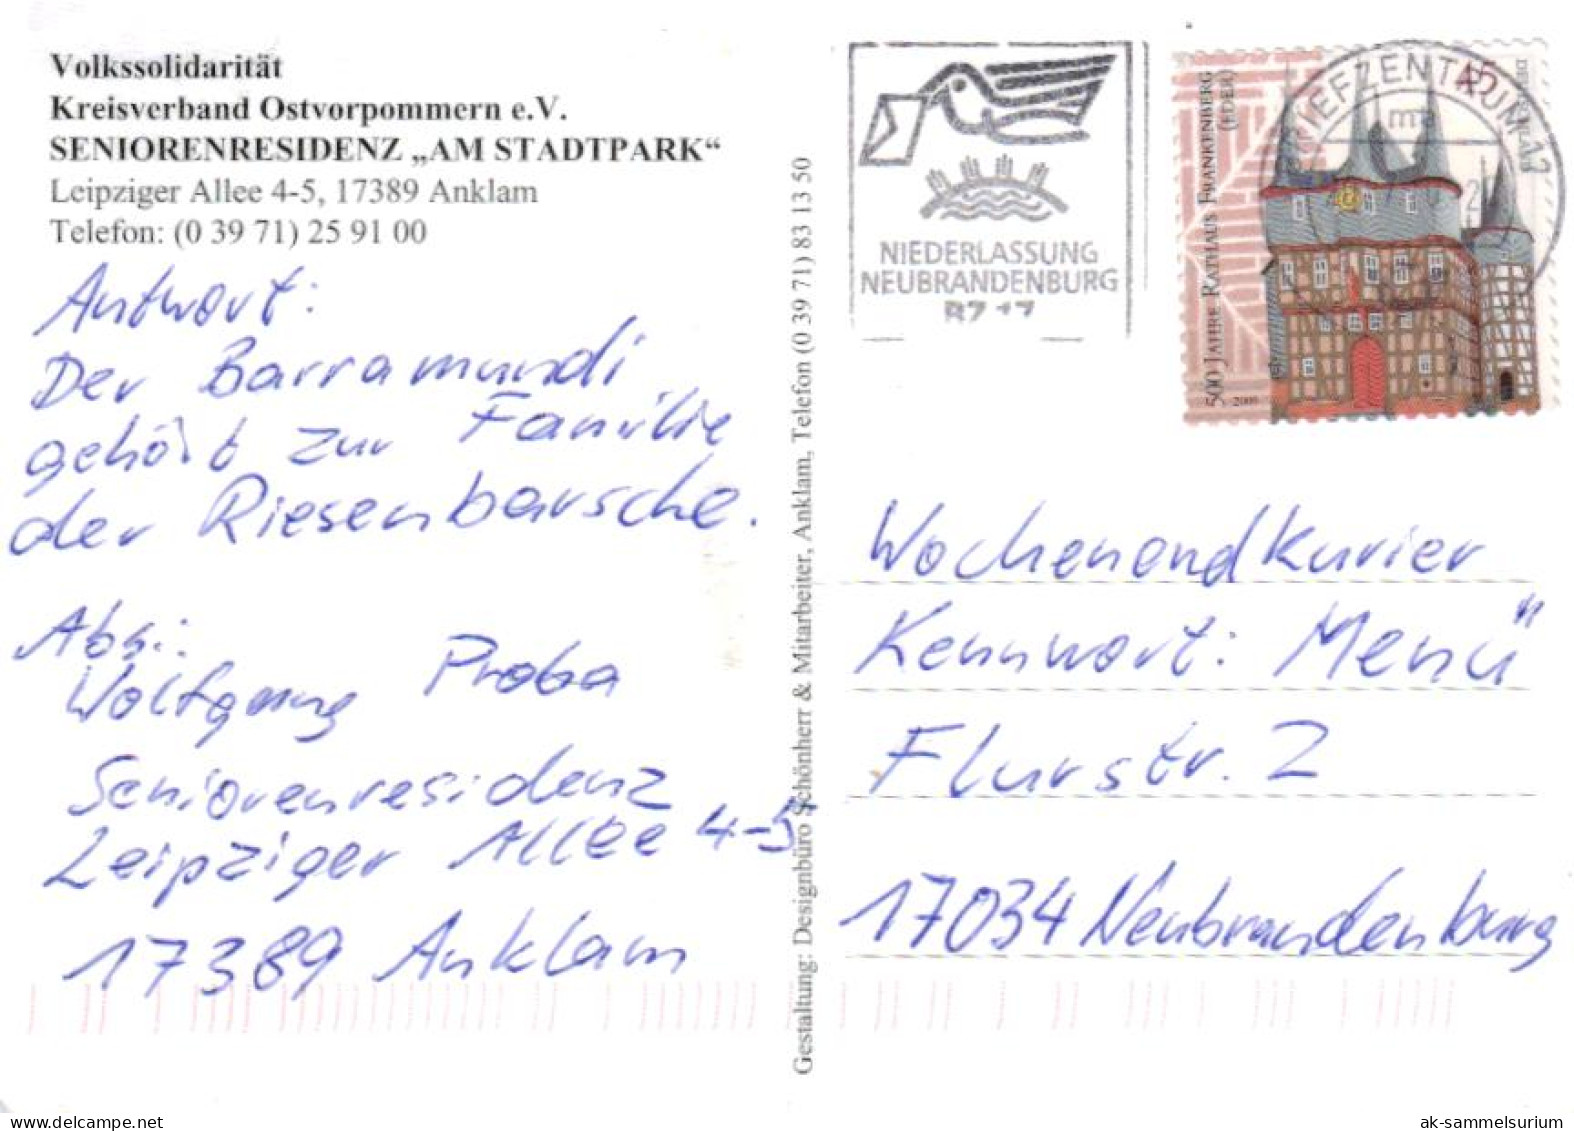 Volkssolidarität
Kreisverband Ostvorpommern e.V.
SENIORENRESIDENZ „AM STADTPARK“
Leipziger Allee 4-5, 17389 Anklam
Telefon: (0 39 71) 25 91 00
Antwort:
Der Barramundi
gehört zur Familie
der Riesenbarsche.
Abs.:
Wolfgang Proba
Seniorenresidenz
Leipziger Allee 4-5
17389 Anklam
Gestaltung: Designbüro Schönherr & Mitarbeiter, Anklam, Telefon (0 39 71) 83 13 50
NIEDERLASSUNG
NEUBRANDENBURG
BZ 17
BRIEFZENTRUM 17
ma
500 JAHRE RATHAUS FRANKENBERG
(EDER)
45
Wochenendkurier
Kennwort: Menü"
Flurstr. 2
17034 Neubrandenburg
www.delcampe.net
ak-sammelsurium